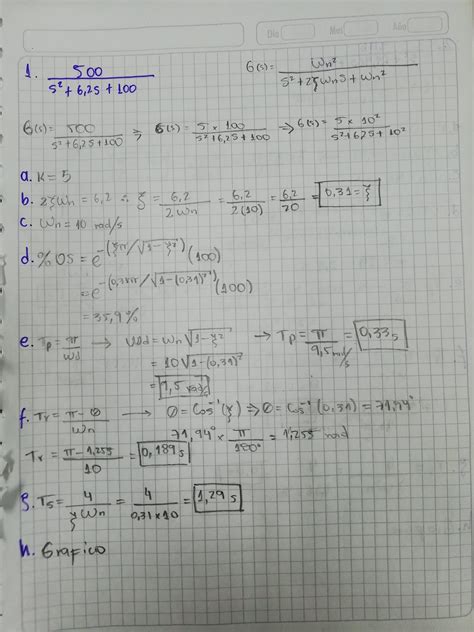 Día Mes Año
1. 500 / s²+6,2s+100
G(s) = ωn² / s²+2ζωns+ωn²
G(s) = 500 / s²+6,2s+100 ⇒ G(s) = 5 × 100 / s²+6,2s+100 ⇒ G(s) = 5 × 10² / s²+6,2s+10²
a. K = 5
b. 2ζωn = 6,2 ∴ ζ = 6,2 / 2ωn = 6,2 / 2(10) = 6,2 / 20 = 0,31 = ζ
c. ωn = 10 rad/s
d. % OS = e^-(ζπ/√1-ζ²) (100)
= e^-(0,31π/√1-(0,31)²) (100)
= 35,9%
e. Tp = π / ωd → ωd = ωn√1-ζ² → Tp = π / 9,5 rad/s = 0,33 s
= 10√1-(0,31)²
= 9,5 rad/s
f. Tr = π-θ / ωn → θ = Cos⁻¹(ζ) ⇒ θ = Cos⁻¹(0,31) = 71,94°
71,94° × π / 180° = 1,255 rad
Tr = π-1,255 / 10 = 0,189 s
g. Ts = 4 / ζωn = 4 / 0,31×10 = 1,29 s
h. Grafico